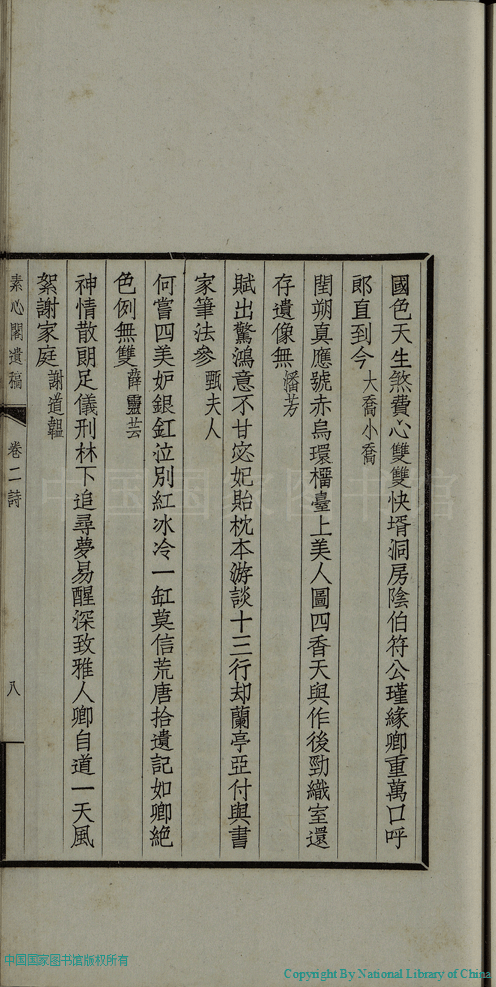 國色天生煞費心雙雙快壻洞房陰伯符公瑾緣卿重萬口呼
郎直到今大喬小喬
閏朔真應號赤烏環榴臺上美人圖四香天與作後勁織室還
存遺像無潘芳
賦出驚鴻意不甘宓妃貽枕本游談十三行却蘭亭亞付與書
家筆法參甄夫人
何嘗四美妒銀釭泣別紅冰冷一缸莫信荒唐拾遺記如卿絕
色例無雙薛靈芸
神情散朗足儀刑林下追尋夢易醒深致雅人卿自道一天風
絮謝家庭謝道韞
素心閣遺稿 卷二詩 八
中国国家图书馆
中国国家图书馆版权所有
Copyright By National Library of China